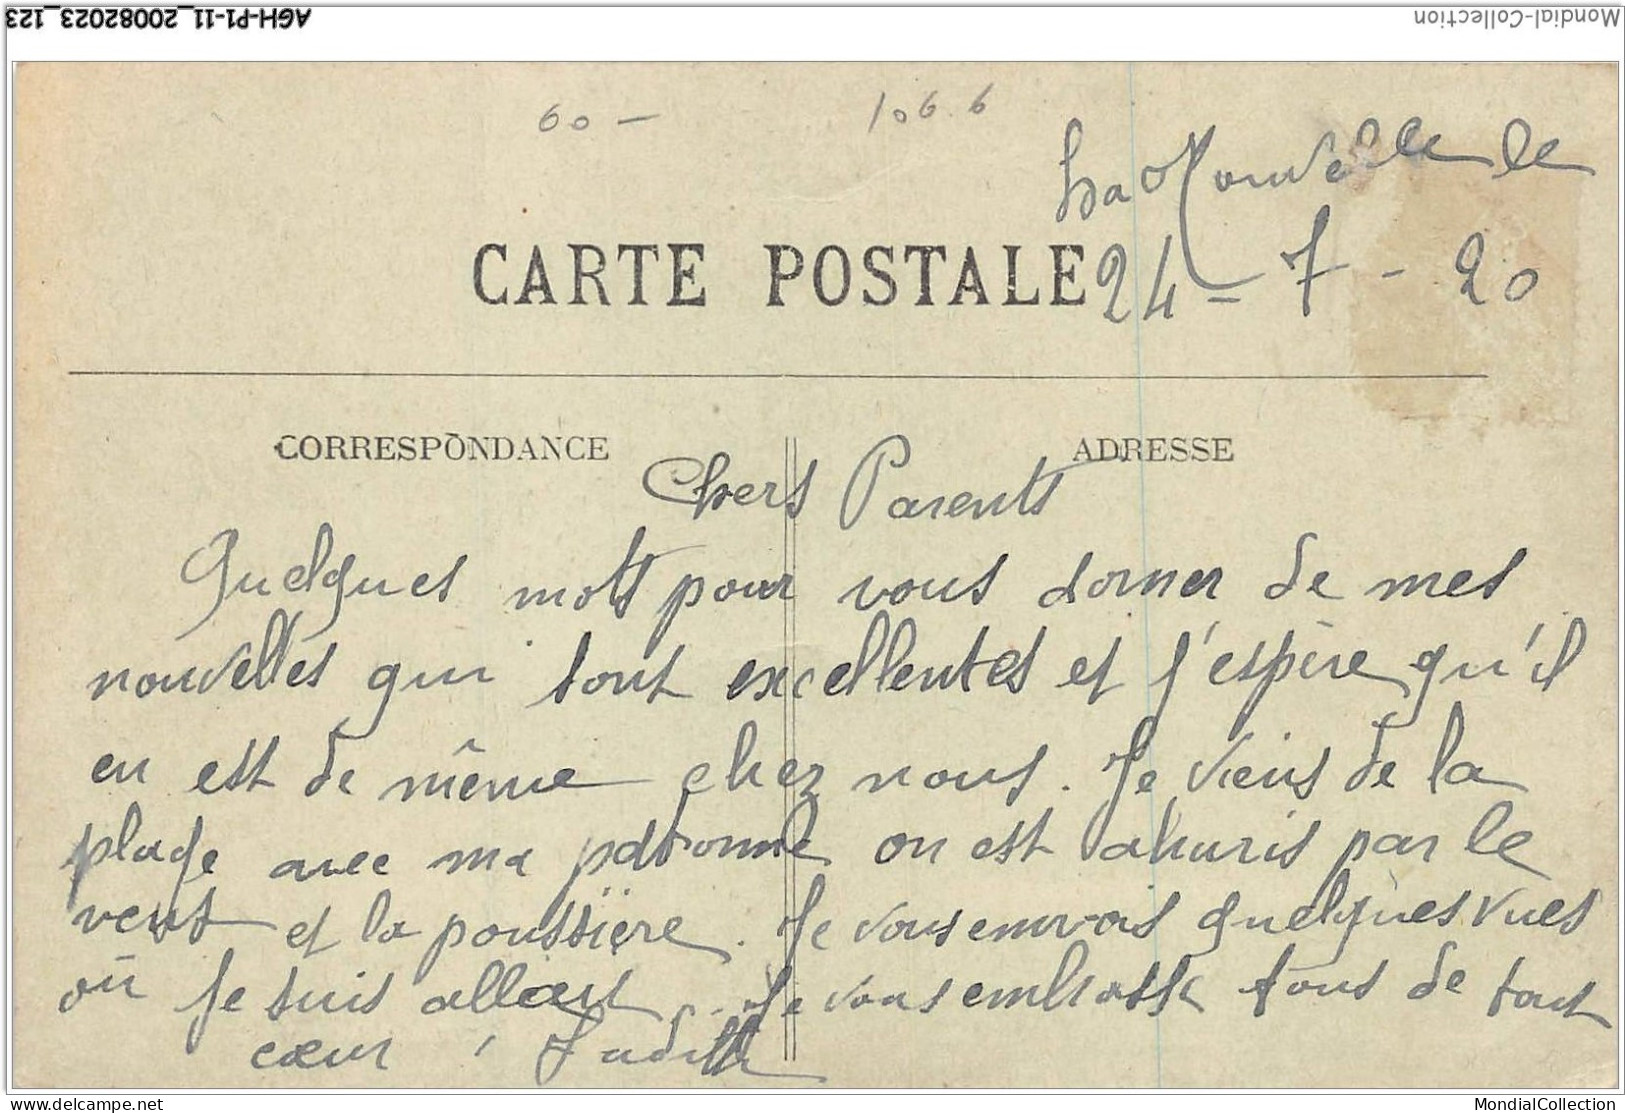 AGH-P1-11_20082023_123
Mondial-Collection
60 - 106.6
La Nouvelle le
24 - 7 - 20
CARTE POSTALE
CORRESPONDANCE
ADRESSE
Chers Parents
Quelques mots pour vous donner de mes
nouvelles qui sont excellentes et j'espère qu'il
en est de même chez nous. Je viens de la
plage avec ma patronne on est ahuris par le
vent et la poussière. Je vous envois quelques vues
où je suis allait. Je vous embrasse tous de tout
cœur Judith
delcampe.net
MondialCollection